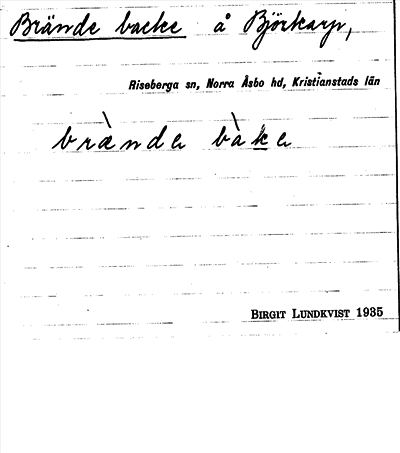 Brände backe å Björkarp,
Riseberga sn, Norra Åsbo hd, Kristianstads län
brànde bàke
BIRGIT LUNDKVIST 1935